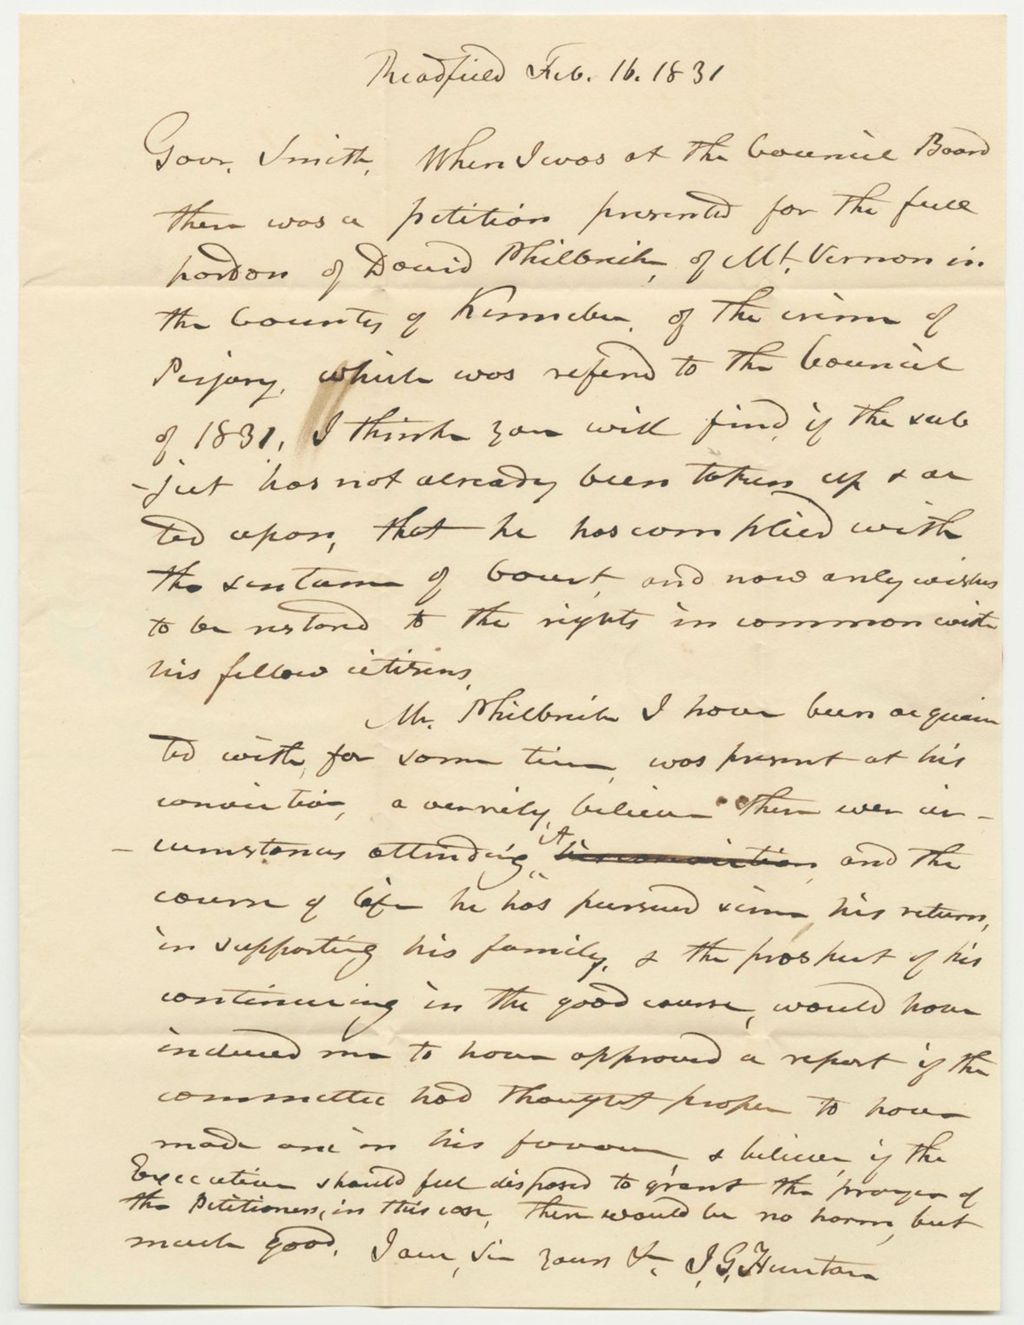 Readfield Feb. 16. 1831
Govr. Smith, When I was at the Council Board
there was a petition presented for the full
pardon of David Philbrick, of Mt. Vernon in
the County of Kennebec, of the crime of
Perjury, which was referd to the Council
of 1831. I think you will find, if the sub
-ject has not already been taken up & ac
ted upon, that he has complied with
the sentance of Court, and now only wishes
to be restored to the rights in common with
his fellow citizens.
Mr. Philbrick I have been acquain
ted with, for some time, was present at his
conviction, a verrily believe there wer cir-
-cumstances attending it his conviction, and the
course of life he has pursued since his return,
in supporting his family, & the prospect of his
continuing in the good course, would have
induced me to have approved a report if the
committee had thought proper to have
made one in his favour & believe, if the
Executive should feel disposed to grant the prayer of
the Petitioners, in this case, there would be no harm, but
much good. I am, Sir yours &c J. G. Hunton